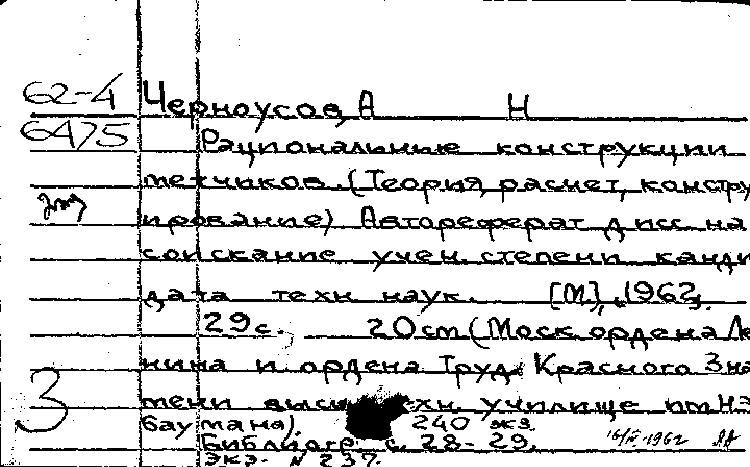 62-4 Черноусов, А Н
6475 Рациональные конструкции
метчиков. (Теория, расчет, констру
ирование) Автореферат дисс на
соискание учен. степени канди
дата техн наук. [М], 1962.
29с. 20 см (Моск ордена Ле
нина и ордена Труд. Красного Зна
3 мени высш техн. училище им Н Э
Баумана). 240 экз.
Библиогр с. 28-29. 1962
экз. N 237.